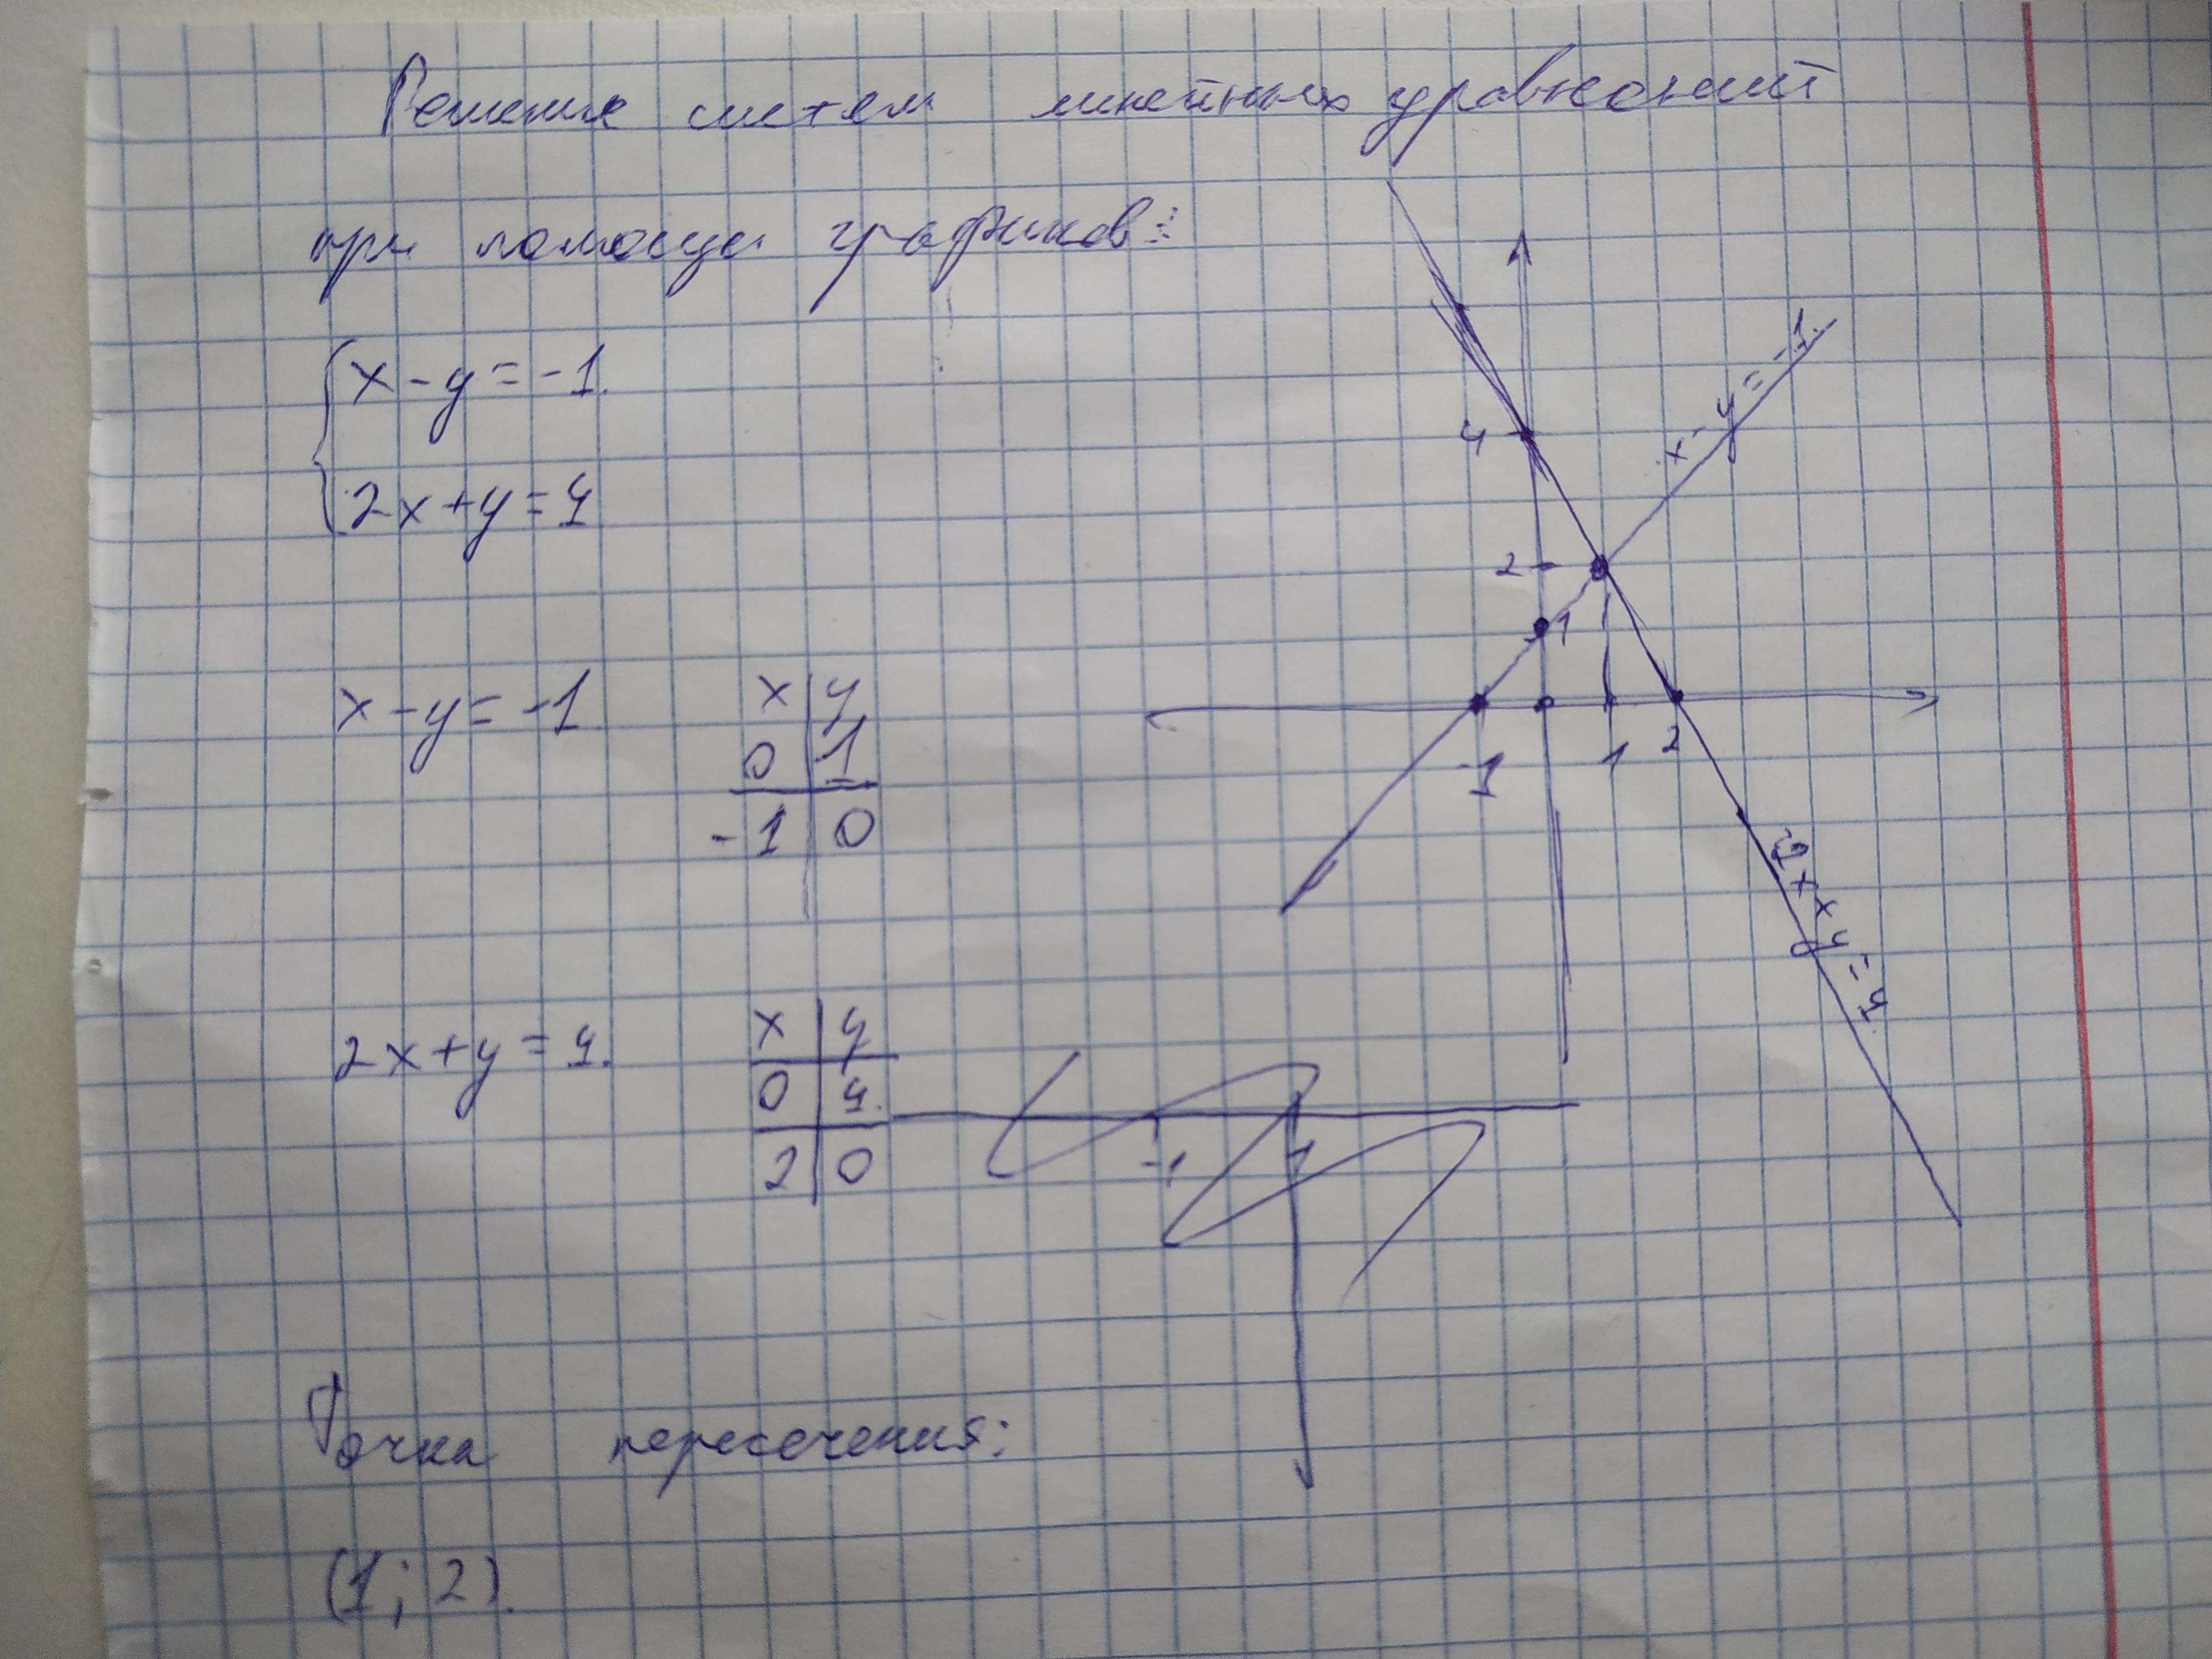 Решение систем линейных уравнений
при помощи графиков:
x - y = -1.
2x + y = 4
x - y = -1
x y
0 1
-1 0
2x + y = 4.
x y
0 4.
2 0
Точка пересечения:
(1; 2).
4
2
1
-1 1 2
x - y = -1.
2x + y = 4.
-1 1